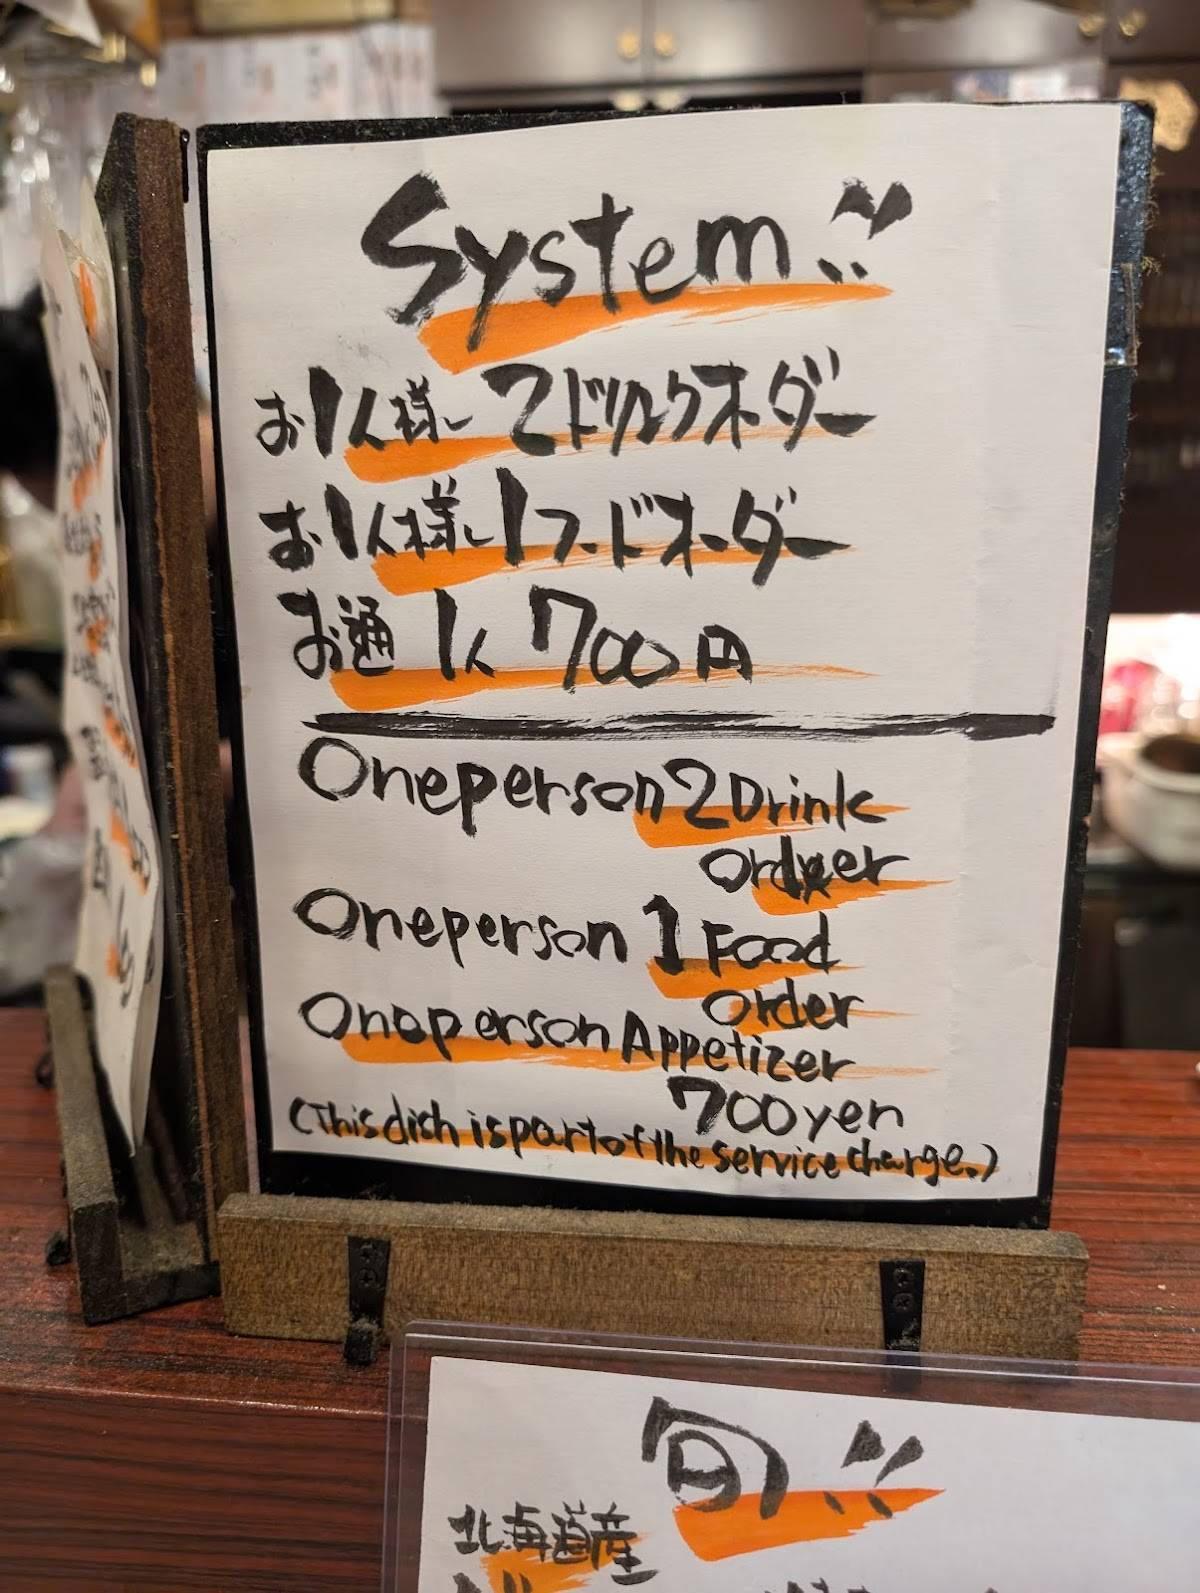 System!!
お1人様 2ドリンクオーダー
お1人様 1フードオーダー
お通 1人 700円
One person 2 Drink
order
One person 1 Food
order
One person Appetizer
700yen
(This dish is part of the service charge.)
旬!!
北海道産